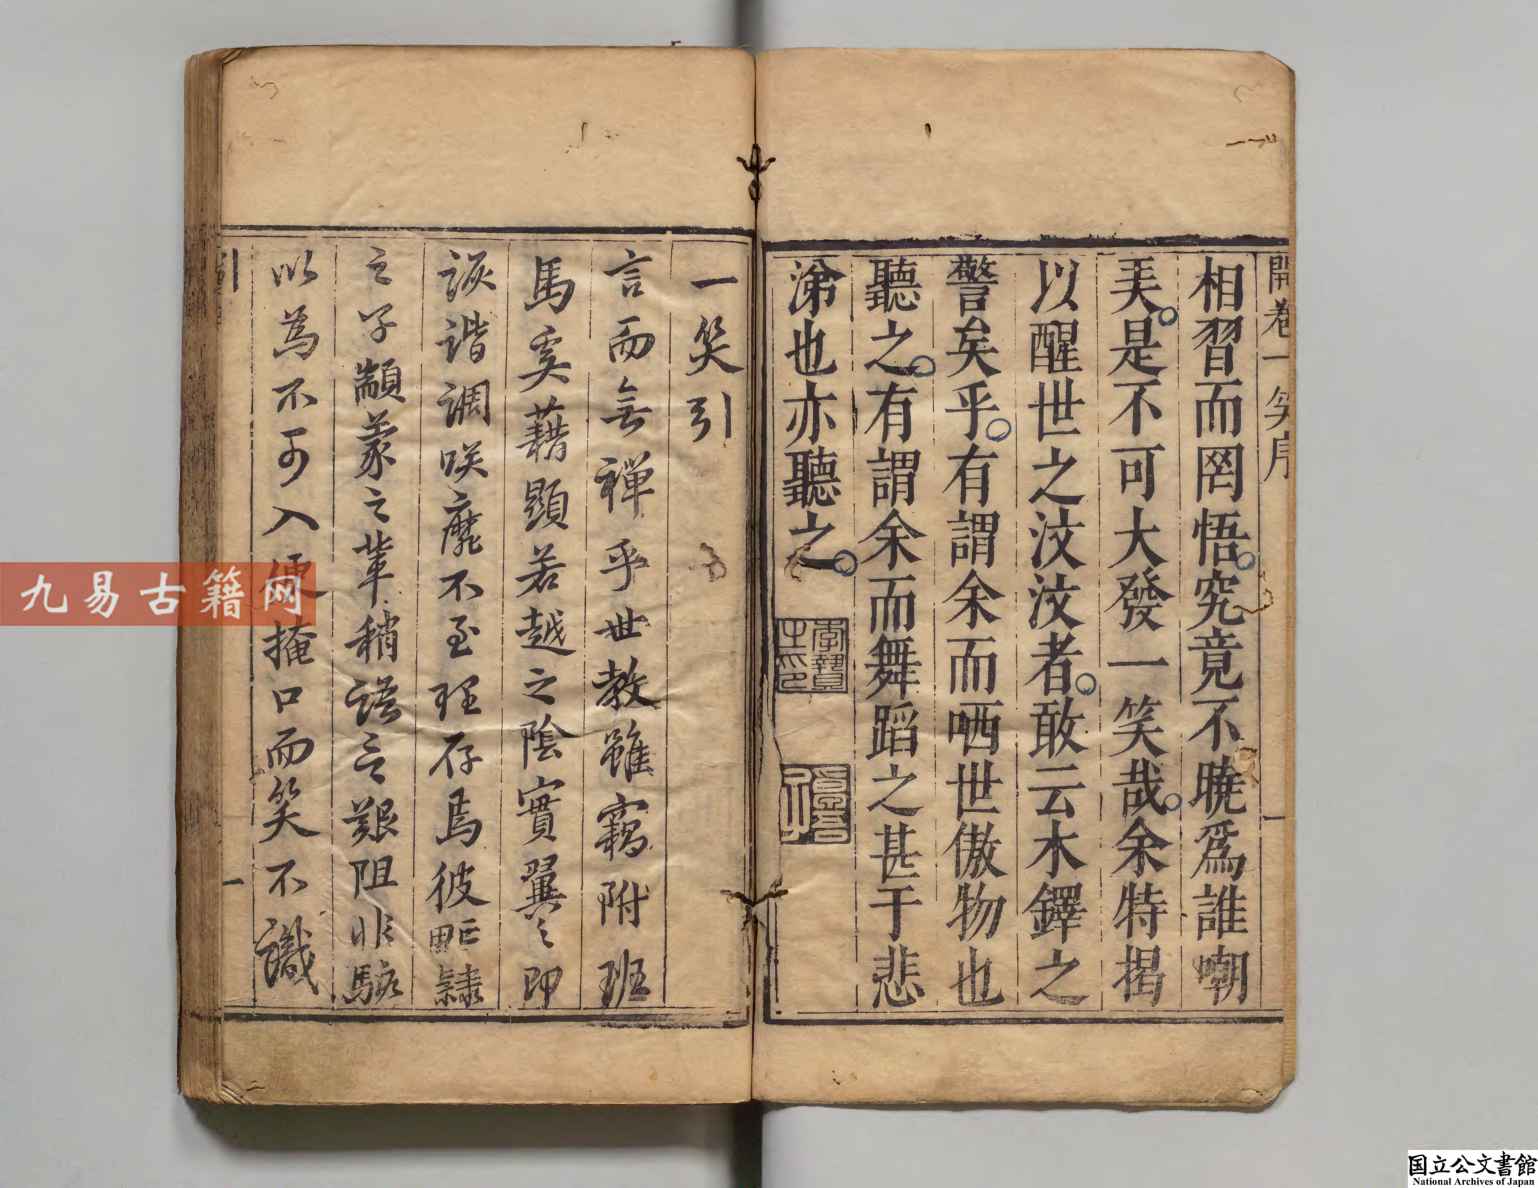 開卷一笑序
相習而罔悟究竟不曉爲誰嘲
美是不可大發一笑哉余特揭
以醒世之汶汶者敢云木鐸之
警矣乎有謂余而哂世傲物也
聽之有謂余而舞蹈之甚于悲
涕也亦聽之
一
一笑引
言而無禪乎世教雖竊附班
馬奚藉顕若越之陰實翼之即
詼諧調咲靡不至理存焉彼甿隷
之子顓蒙之輩稍語之艱阻非駭
以為不可入便掩口而笑不識
引
一
九易古籍网
国立公文書館
National Archives of Japan